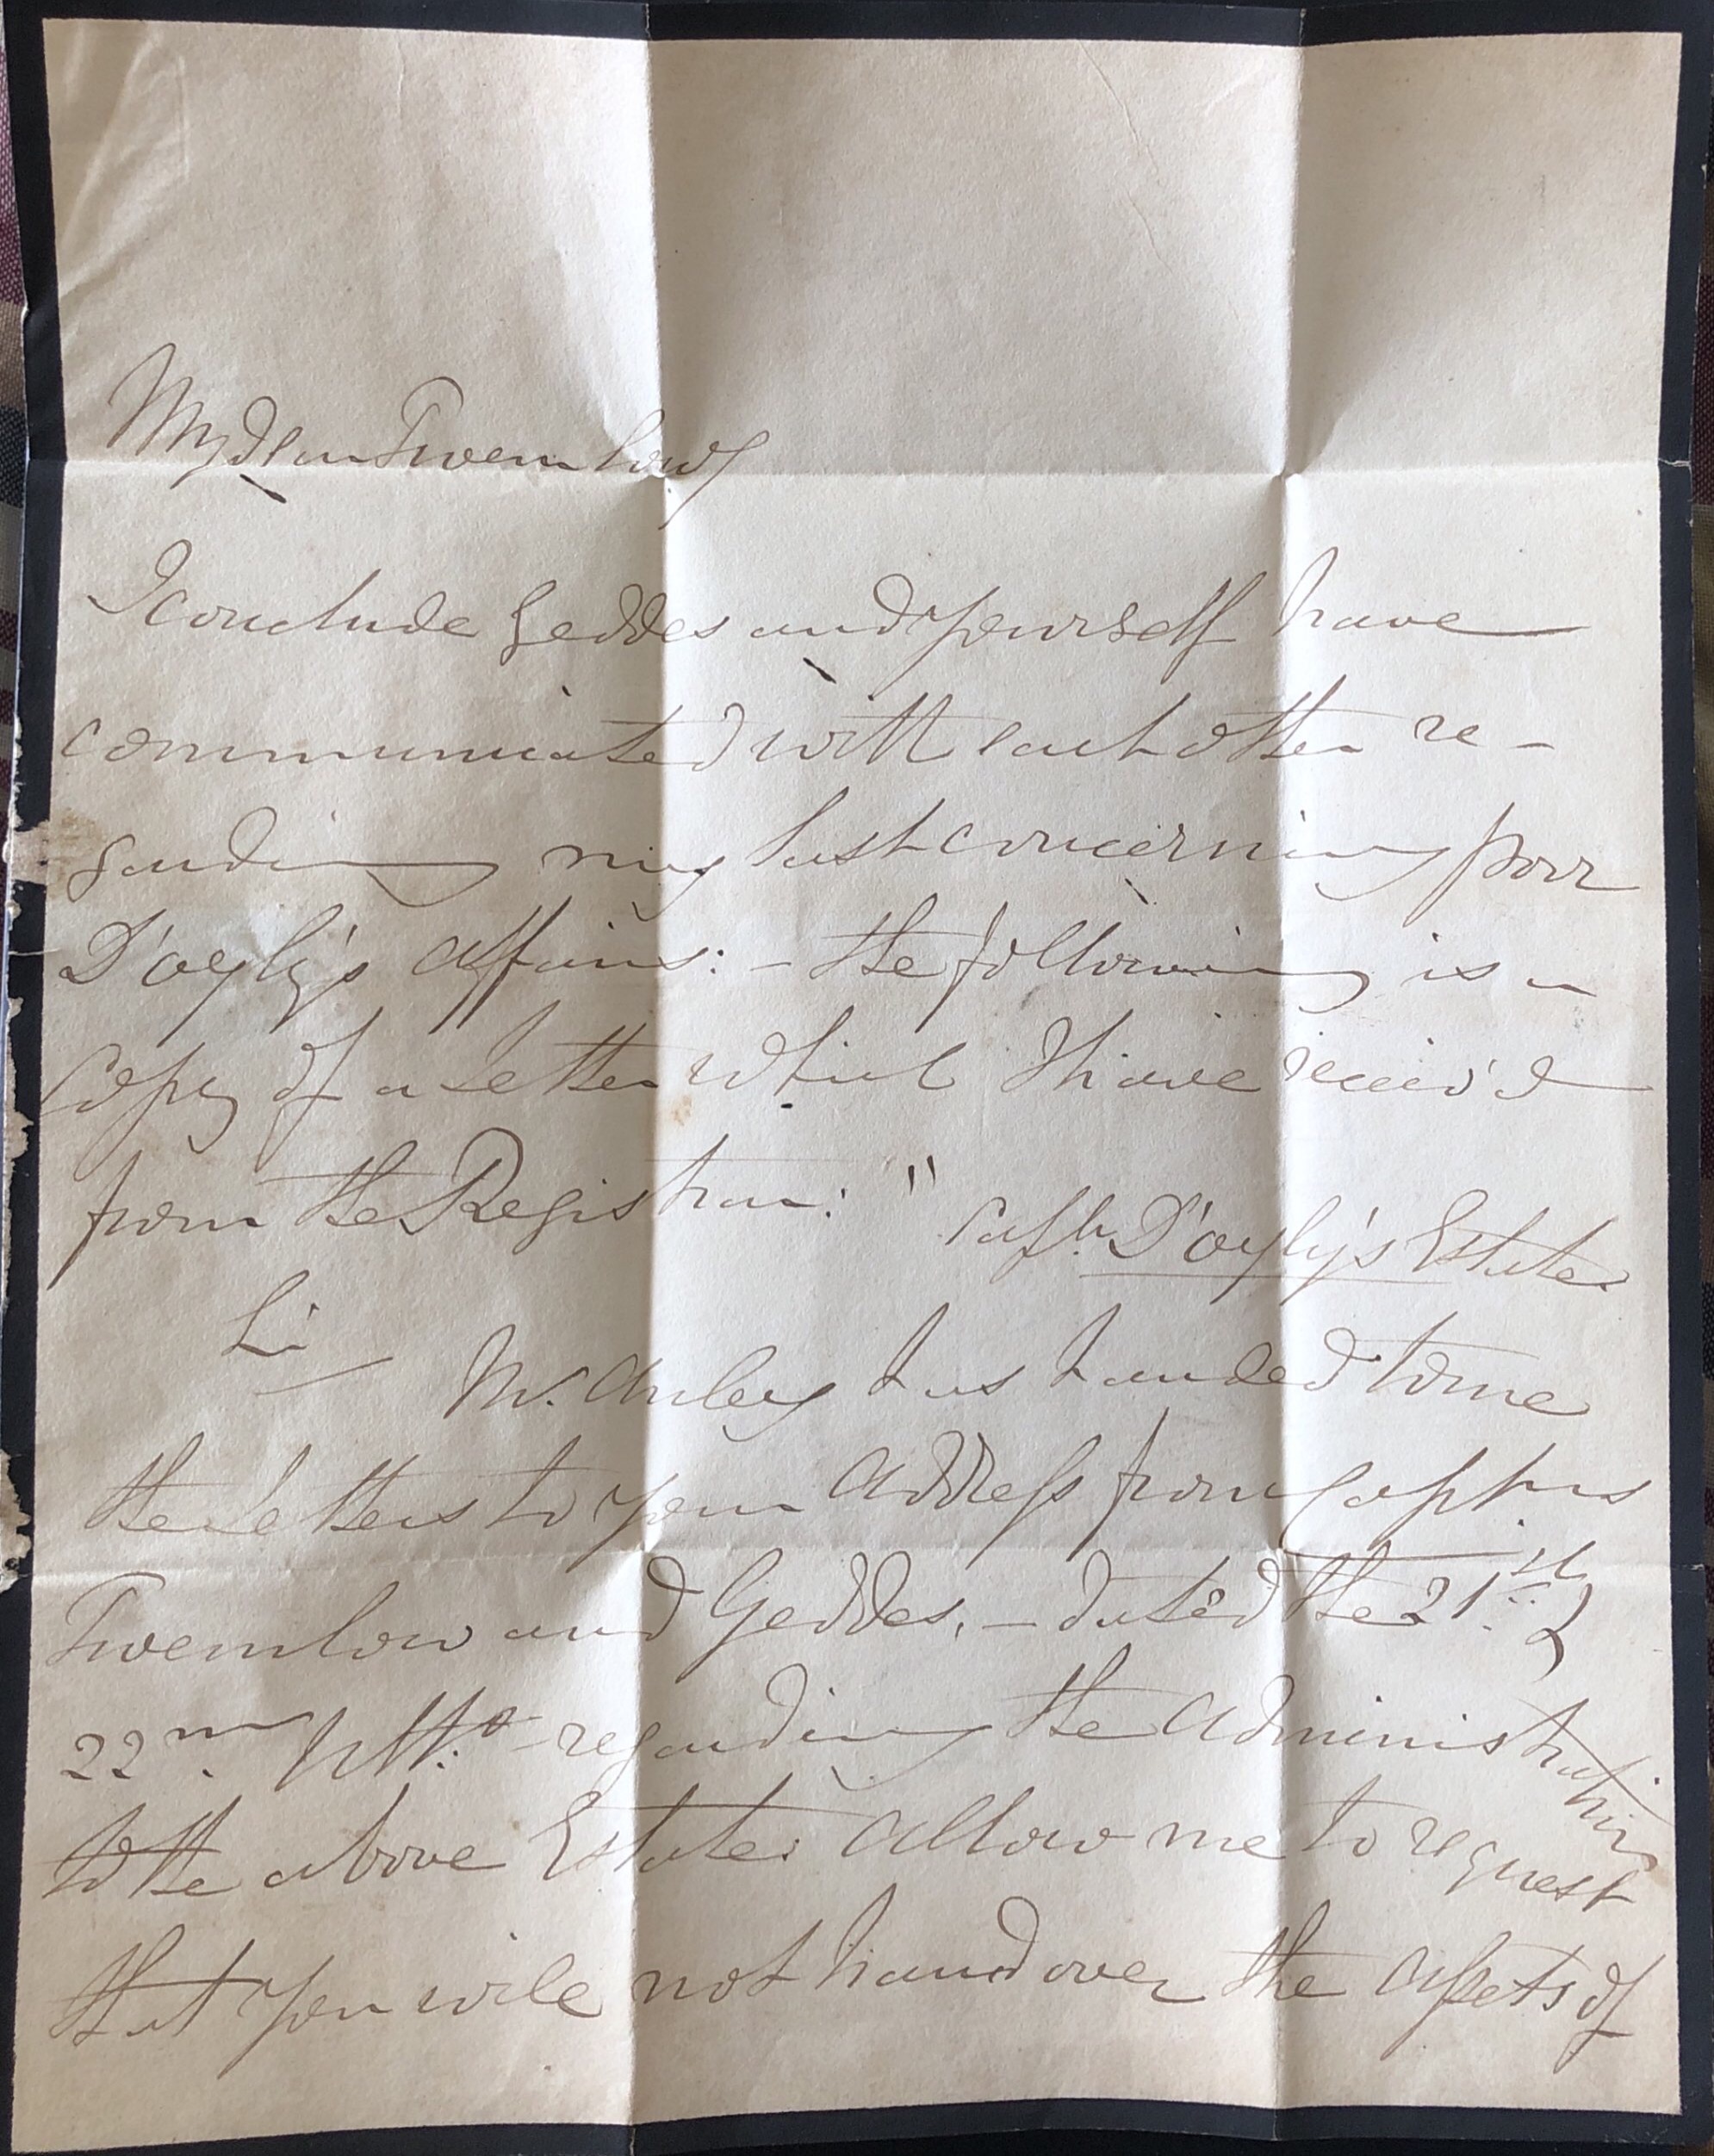 My dear Twemlow
I conclude Geddes and yourself have
communicated with each other re-
garding my last concerning poor
D'oyly's affairs: - the following is a
Copy of a letter which I have receiv'd
from the Registrar: "Capt. D'oyly's Estate
Sir
Mr. Anley has handed to me
the letters to your address from Capt:ns
Twemlow and Geddes, - dated the 21st &
22nd Ulto - regarding the administration
to the above Estate. allow me to request
that you will not hand over the assets of